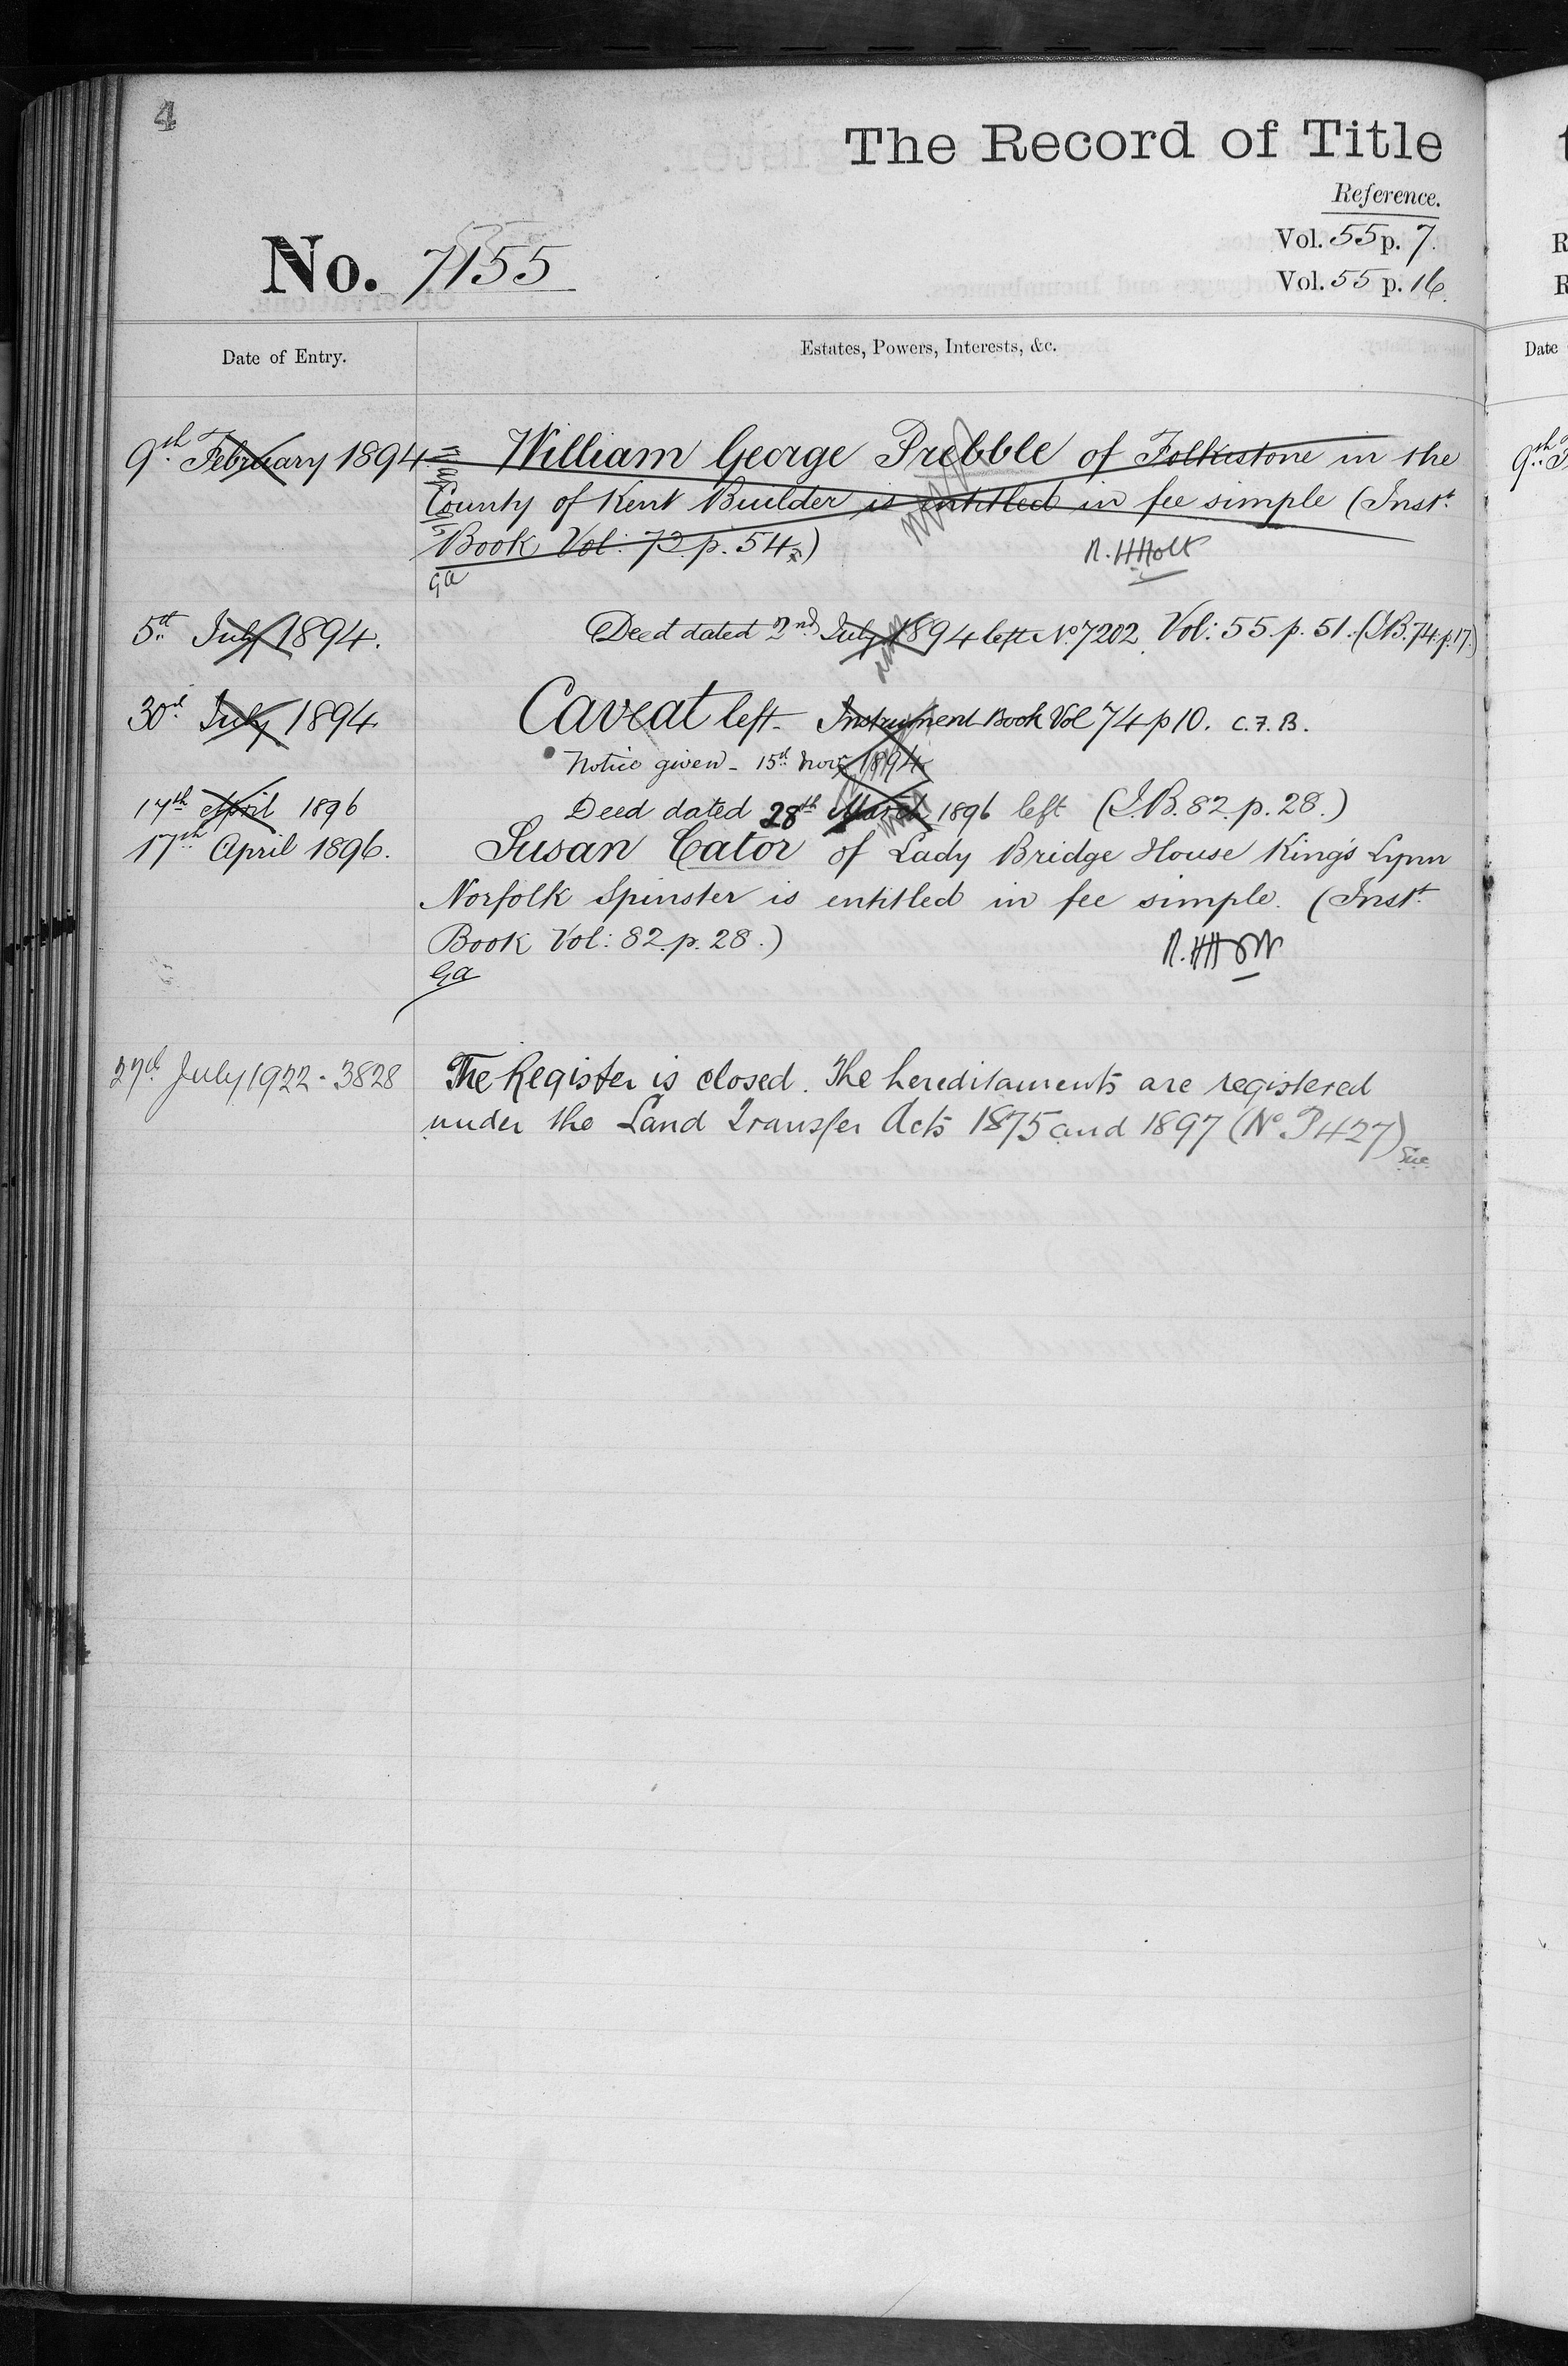 4
The Record of Title
Reference.
Vol. 55 p. 7.
No. 7155
Vol. 55 p. 16.
Date of Entry.
Estates, Powers, Interests, &c.
Date
9th February 1894
William George Prebble of Folkestone in the
County of Kent Builder is entitled in fee simple (Inst.
Book Vol: 72. p. 54.)
R. H Holt
GA
5th July 1894.
Deed dated 2nd July 1894 left No. 7202. Vol: 55. p. 51. (I.B. 74. p. 17.)
30th July 1894
Caveat left - Instrument Book Vol 74 p 10. C. F. B.
Notice given - 15th Novr. 1894
17th April 1896
Deed dated 28th March 1896 left (I.B. 82. p. 28.)
17th April 1896.
Susan Cator of Lady Bridge House King's Lynn
Norfolk Spinster is entitled in fee simple. (Inst.
Book Vol: 82. p. 28.)
R. H Holt
GA
27th July 1922 - 3828
The Register is closed. The hereditaments are registered
under the Land Transfer Acts 1875 and 1897 (No. P427)